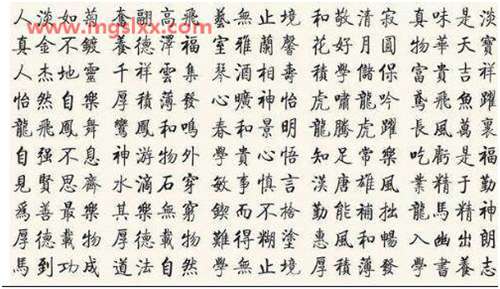 人淡如菊 養翮高飛 藝無止境 和敬清寂 真味是淡
www.mgslxx.com
真金不鍍 養德澤 室雅蘭馨 花好月圓 物華天寶
人杰地靈 千祥雲集 琴酒相壽 積學儲保 富貴吉祥
怡然自樂 厚積薄發 心曠神怡 虎嘯龍吟 鳶飛魚躍
龍飛鳳舞 鸞鳳和鳴 春和景明 龍騰虎躍 長風萬裏
自强不息 神游物外 學貴心悟 知足常樂 吃虧是福
見賢思齊 水滴石穿 敏事慎言 漢唐雄風 業精于勤
爲善最樂 其樂無窮 鍥而不捨 勤能補拙 龍馬精神
厚德載物 厚德載物 難得糊塗 惠風和暢 入幽出朗
馬到功成 道法自然 學無止境 厚積薄發 學書養志